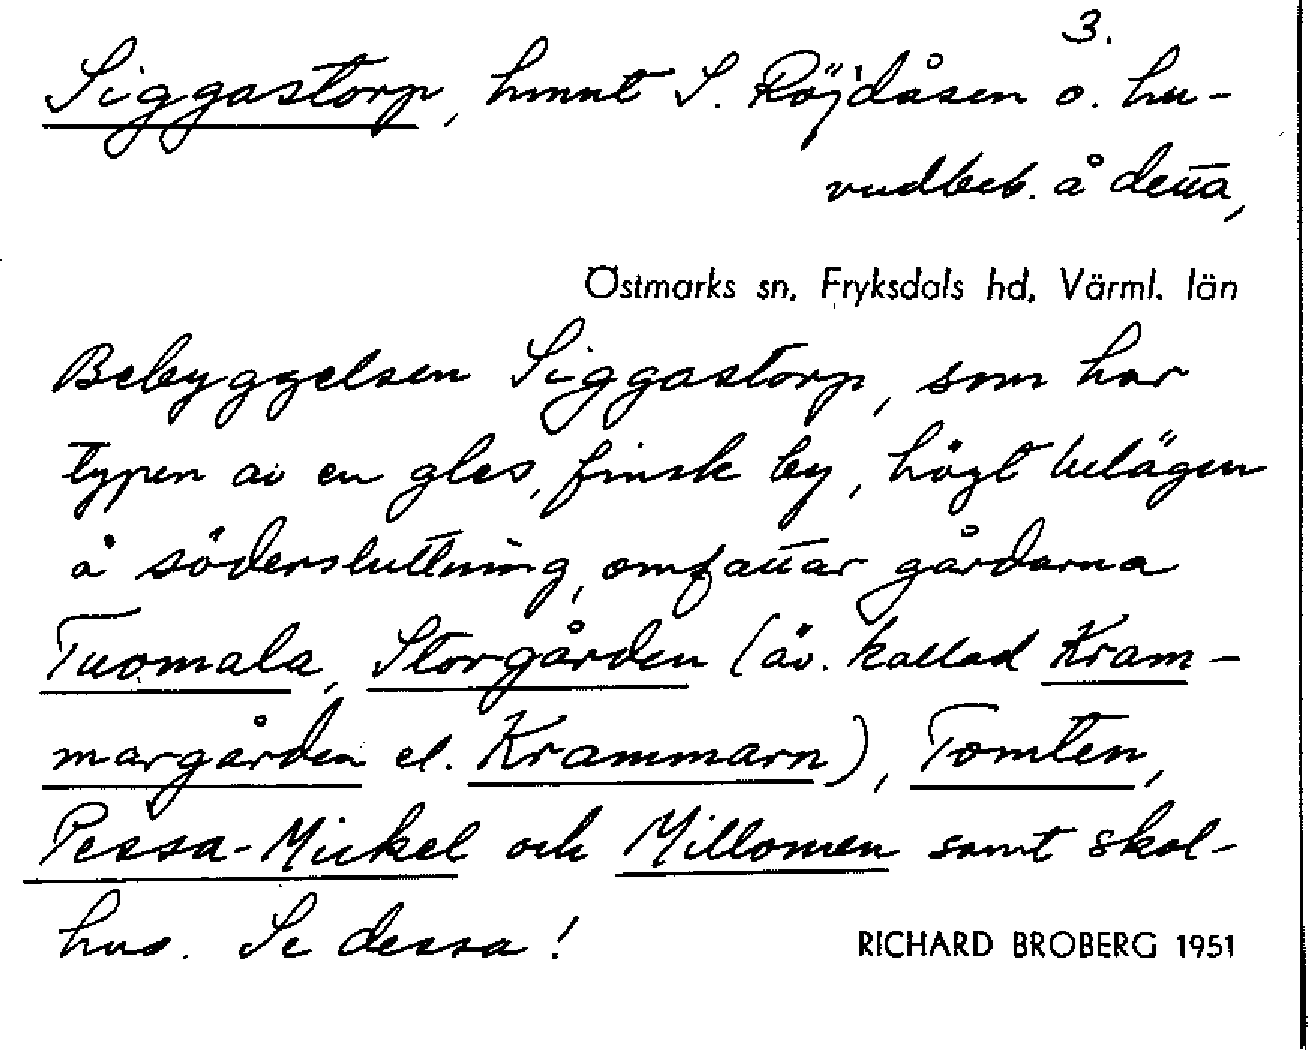 3.
Siggastorp, hmnt S. Röjdåsen o. hu-
vudbeb. å detta,
Östmarks sn. Fryksdals hd. Värml. län
Bebyggelsen Siggastorp, som har
typen av en gles, finsk by, högt belägen
å södersluttning, omfattar gårdarna
Tuomala, Storgården (äv. kallad Kram-
margården el. Krammarn), Tomten,
Pessa-Mickel och Millomen samt skol-
hus. Se dessa!
RICHARD BROBERG 1951